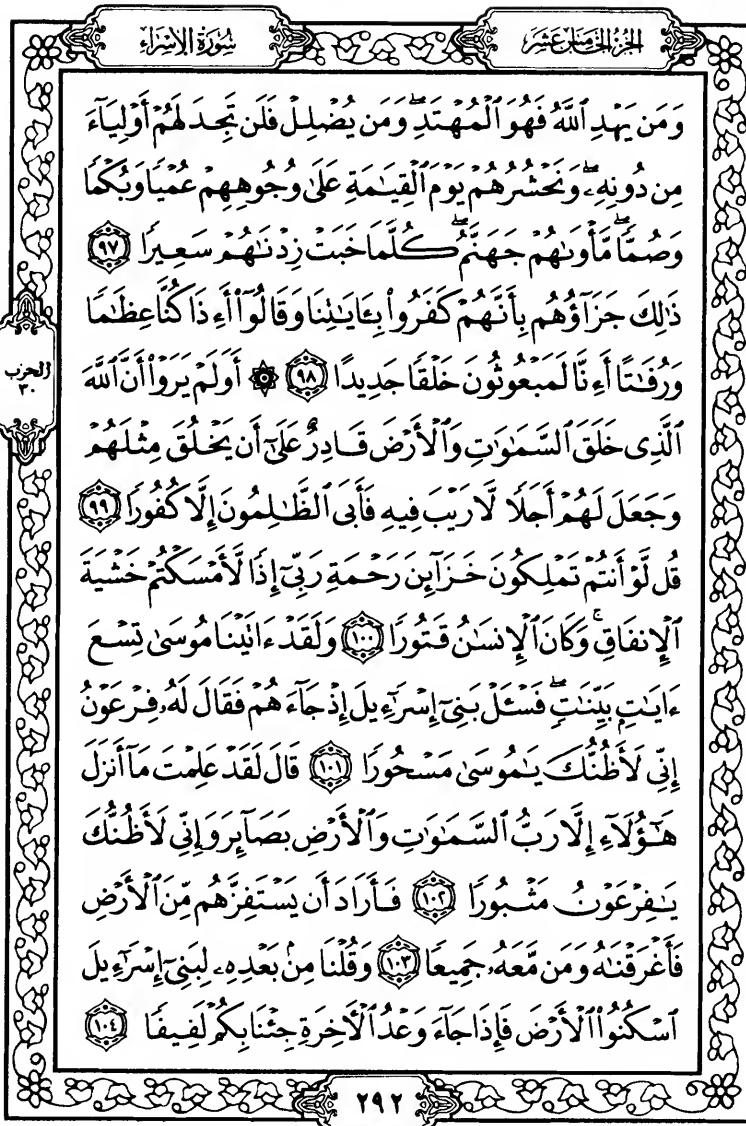 الجزء الخامس عشر
سورة الإسراء
وَمَن يَهْدِ ٱللَّهُ فَهُوَ ٱلْمُهْتَدِۖ وَمَن يُضْلِلْ فَلَن تَجِدَ لَهُمْ أَوْلِيَآءَ
مِن دُونِهِۦۖ وَنَحْشُرُهُمْ يَوْمَ ٱلْقِيَٰمَةِ عَلَىٰ وُجُوهِهِمْ عُمْيًا وَبُكْمًا
وَصُمًّاۖ مَّأْوَىٰهُمْ جَهَنَّمُۖ كُلَّمَا خَبَتْ زِدْنَٰهُمْ سَعِيرًا ٩٧
ذَٰلِكَ جَزَآؤُهُم بِأَنَّهُمْ كَفَرُوا۟ بِـَٔايَٰتِنَا وَقَالُوٓا۟ أَءِذَا كُنَّا عِظَٰمًا
وَرُفَٰتًا أَءِنَّا لَمَبْعُوثُونَ خَلْقًا جَدِيدًا ٩٨ ۞ أَوَلَمْ يَرَوْا۟ أَنَّ ٱللَّهَ
الحزب
٣٠
ٱلَّذِى خَلَقَ ٱلسَّمَٰوَٰتِ وَٱلْأَرْضَ قَادِرٌ عَلَىٰٓ أَن يَخْلُقَ مِثْلَهُمْ
وَجَعَلَ لَهُمْ أَجَلًا لَّا رَيْبَ فِيهِ فَأَبَى ٱلظَّٰلِمُونَ إِلَّا كُفُورًا ٩٩
قُل لَّوْ أَنتُمْ تَمْلِكُونَ خَزَآئِنَ رَحْمَةِ رَبِّىٓ إِذًا لَّأَمْسَكْتُمْ خَشْيَةَ
ٱلْإِنفَاقِۚ وَكَانَ ٱلْإِنسَٰنُ قَتُورًا ١٠٠ وَلَقَدْ ءَاتَيْنَا مُوسَىٰ تِسْعَ
ءَايَٰتٍۭ بَيِّنَٰتٍۖ فَسْـَٔلْ بَنِىٓ إِسْرَٰٓءِيلَ إِذْ جَآءَهُمْ فَقَالَ لَهُۥ فِرْعَوْنُ
إِنِّى لَأَظُنُّكَ يَٰمُوسَىٰ مَسْحُورًا ١٠١ قَالَ لَقَدْ عَلِمْتَ مَآ أَنزَلَ
هَٰٓؤُلَآءِ إِلَّا رَبُّ ٱلسَّمَٰوَٰتِ وَٱلْأَرْضِ بَصَآئِرَ وَإِنِّى لَأَظُنُّكَ
يَٰفِرْعَوْنُ مَثْبُورًا ١٠٢ فَأَرَادَ أَن يَسْتَفِزَّهُم مِّنَ ٱلْأَرْضِ
فَأَغْرَقْنَٰهُ وَمَن مَّعَهُۥ جَمِيعًا ١٠٣ وَقُلْنَا مِنۢ بَعْدِهِۦ لِبَنِىٓ إِسْرَٰٓءِيلَ
ٱسْكُنُوا۟ ٱلْأَرْضَ فَإِذَا جَآءَ وَعْدُ ٱلْأَخِرَةِ جِئْنَا بِكُمْ لَفِيفًا ١٠٤
٢٩٢